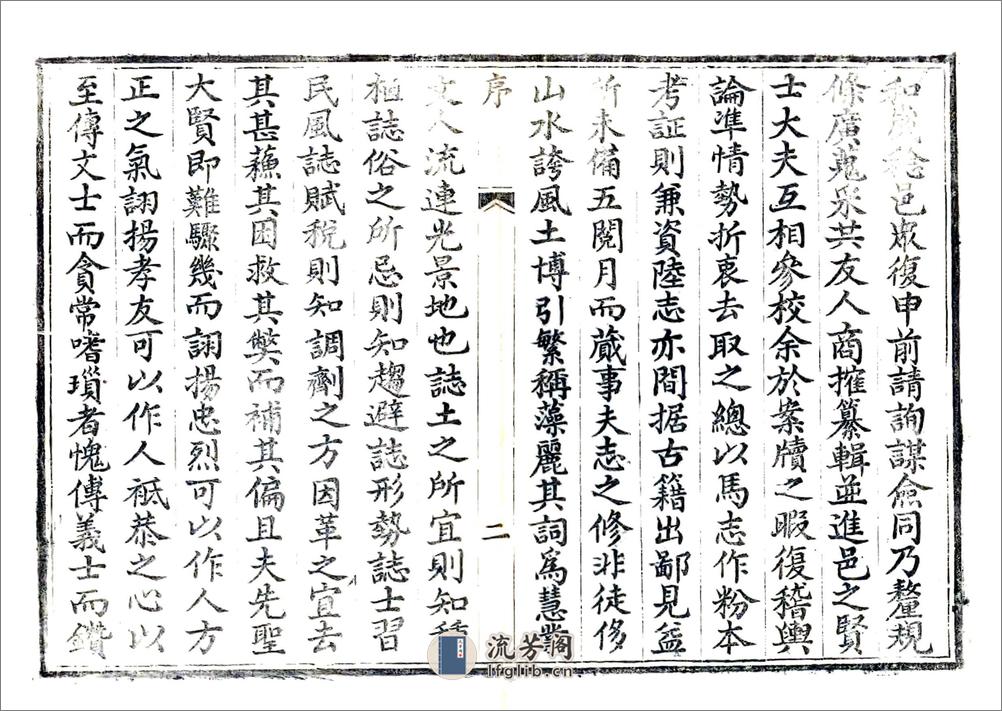 和歲稔邑眾復申前請詢謀僉同乃釐規
條廣蒐采共友人商搉纂輯並進邑之賢
士大夫互相參校余於案牘之暇復稽輿
論準情勢折衷去取之總以馬志作粉本
考証則兼資陸志亦間据古籍出鄙見益
所未備五閱月而蕆事夫志之修非徒侈
山水誇風土博引繁稱藻麗其詞為慧業
序
二
文人流連光景地也誌土之所宜則知種
植誌俗之所忌則知趨避誌形勢誌士習
民風誌賦稅則知調劑之方因革之宜去
其甚蘓其困救其獘而補其偏且夫先聖
大賢即難驟幾而詡揚忠烈可以作人方
正之氣詡揚孝友可以作人祗恭之心以
至傳文士而貪常嗜瑣者愧傳義士而鑽
流芳閣
lfglib.cn